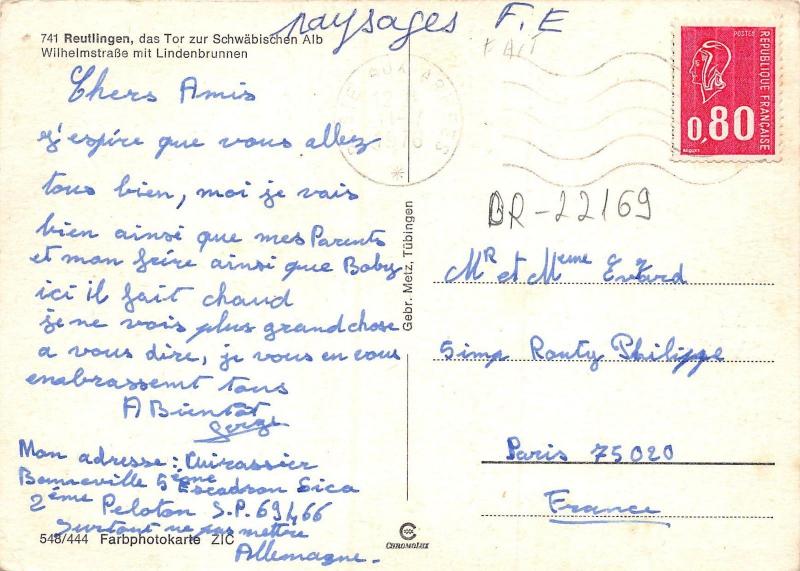 paysages F.E
FAIT
741 Reutlingen, das Tor zur Schwäbischen Alb
Wilhelmstraße mit Lindenbrunnen
Chers Amis
j'espire que vous allez
tous bien, moi je vais
bien ainsi que mes Parents
et mon frire ainsi que Baby
ici il fait chaud
je ne vois plus grand chose
a vous dire, je vous en vous
enabrassemt tous
A Bientôt
Serge
Mon adresse: Cuirassier
Bonneville 5ème Escadron Sica
2ème Peloton S.P. 69466
Surtout ne pas mettre
Allemagne.
548/444 Farbphotokarte ZIC
Gebr. Metz, Tübingen
POSTES
RÉPUBLIQUE FRANÇAISE
0,80
BR-22169
MR et Meme Evrard
5 imp Routy Philippe
Paris 75020
France
CHROMOLUX